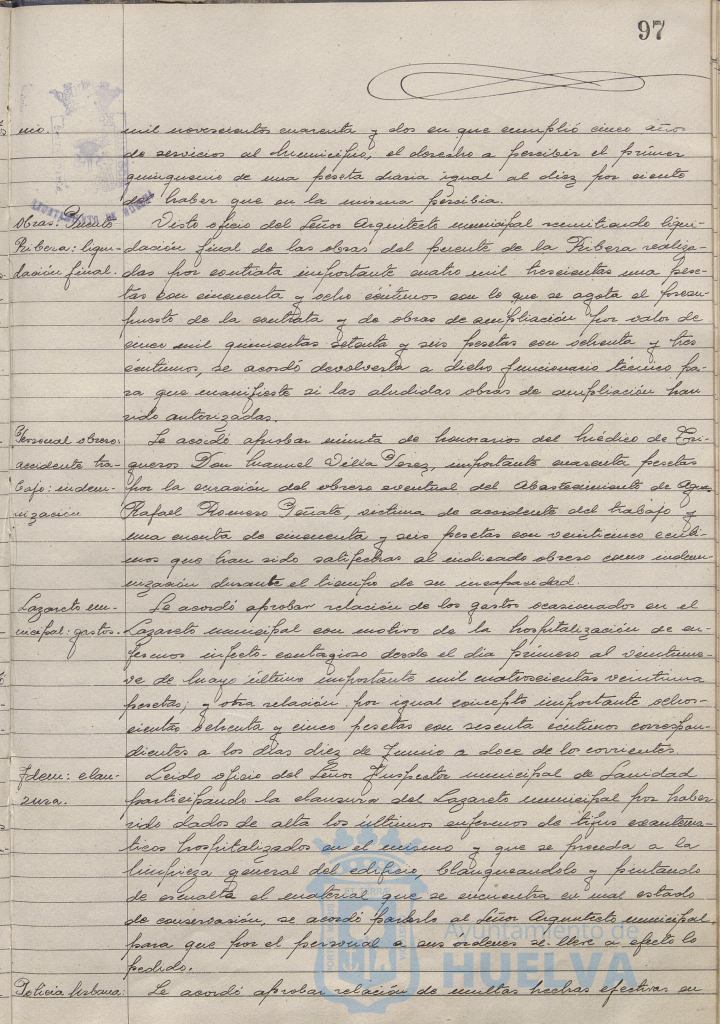 97
nio. mil novecientos cuarenta y dos en que cumplió cinco años
de servicios al Municipio, el derecho a percibir el primer
quinquenio de una peseta diaria igual al diez por ciento
del haber que en la misma percibia.
Obras: Puente Visto oficio del Señor Arquitecto municipal remitiendo liqui-
Ribera: liqui- dación final de las obras del puente de la Ribera realiza-
dación final. das por contrata importante cuatro mil trescientas una pese-
tas con cincuenta y ocho céntimos con lo que se agota el presu-
puesto de la contrata y de obras de ampliación por valor de
cinco mil quinientas setenta y seis pesetas con ochenta y tres
céntimos, se acordó devolverla a dicho funcionario técnico pa-
ra que manifieste si las aludidas obras de ampliación han
sido autorizadas.
Personal obrero: Se acordó aprobar minuta de honorarios del Médico de Tri-
accidente tra- gueros Don Manuel Perez, importante cuarenta pesetas
bajo: indem- por la curación del obrero eventual del Abastecimiento de Aguas
nización Rafael Romero Peñate, victima de accidente del trabajo y
una cuenta de cincuenta y seis pesetas con veinticinco cénti-
mos que han sido satisfechas al indicado obrero como indem-
nización durante el tiempo de su incapacidad.
Lazareto mu- Se acordó aprobar relación de los gastos ocasionados en el
nicipal: gastos. Lazareto municipal con motivo de la hospitalización de en-
fermos infecto-contagioso desde el dia primero al veintinue-
ve de Mayo último importante mil cuatrocientas veintiuna
pesetas; y otra relación por igual concepto importante ocho-
cientas ochenta y cinco pesetas con sesenta céntimos correspon-
dientes a los dias diez de Junio a doce de los corrientes.
Idem: clau- Leido oficio del Señor Inspector municipal de Sanidad
sura. participando la clausura del Lazareto municipal por haber
sido dados de alta los últimos enfermos de tifus exantema-
ticos hospitalizados en el mismo y que se proceda a la
limpieza general del edificio, blanqueandolo y pintando
de esmalte el material que se encuentra en mal estado
de conservación, se acordó pasarlo al Señor Arquitecto municipal
para que por el personal a sus órdenes se lleve a efecto lo
pedido.
Policia Urbana: Se acordó aprobar relación de multas hechas efectivas en
Ayuntamiento de
HUELVA